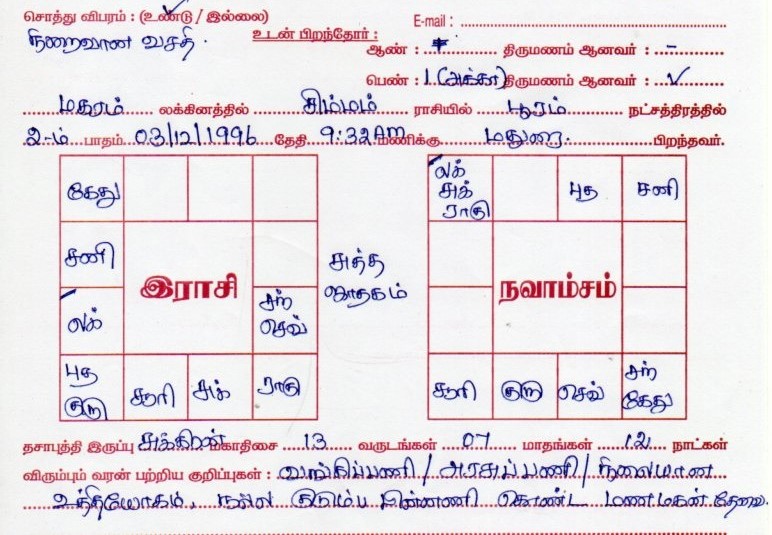 சொத்து விபரம் : (உண்டு / இல்லை) E-mail :
நிறைவான வசதி. உடன் பிறந்தோர் : ஆண் : திருமணம் ஆனவர் : –
பெண் : 1 (அக்கா) திருமணம் ஆனவர் : ✓
மகரம் லக்கினத்தில் சிம்மம் ராசியில் பூரம் நட்சத்திரத்தில்
2-ம் பாதம் 03/12/1996 தேதி 9:32 AM மணிக்கு மதுரை. பிறந்தவர்.
கேது
சனி
லக்
சந் செவ்
புத குரு
சூரி
சுக்
ராகு
இராசி
சுத்த ஜாதகம்
லக் சுக் ராகு
புத
சனி
நவாம்சம்
சூரி
குரு
செவ்
சந் கேது
தசாபுத்தி இருப்பு சுக்கிரன் மகாதிசை 13 வருடங்கள் 07 மாதங்கள் 12 நாட்கள்
விரும்பும் வரன் பற்றிய குறிப்புகள் : வங்கிப்பணி / அரசுப்பணி / நிலையான
உத்தியோகம், நல்ல குடும்ப பின்னணி கொண்ட மணமகன் தேவை.